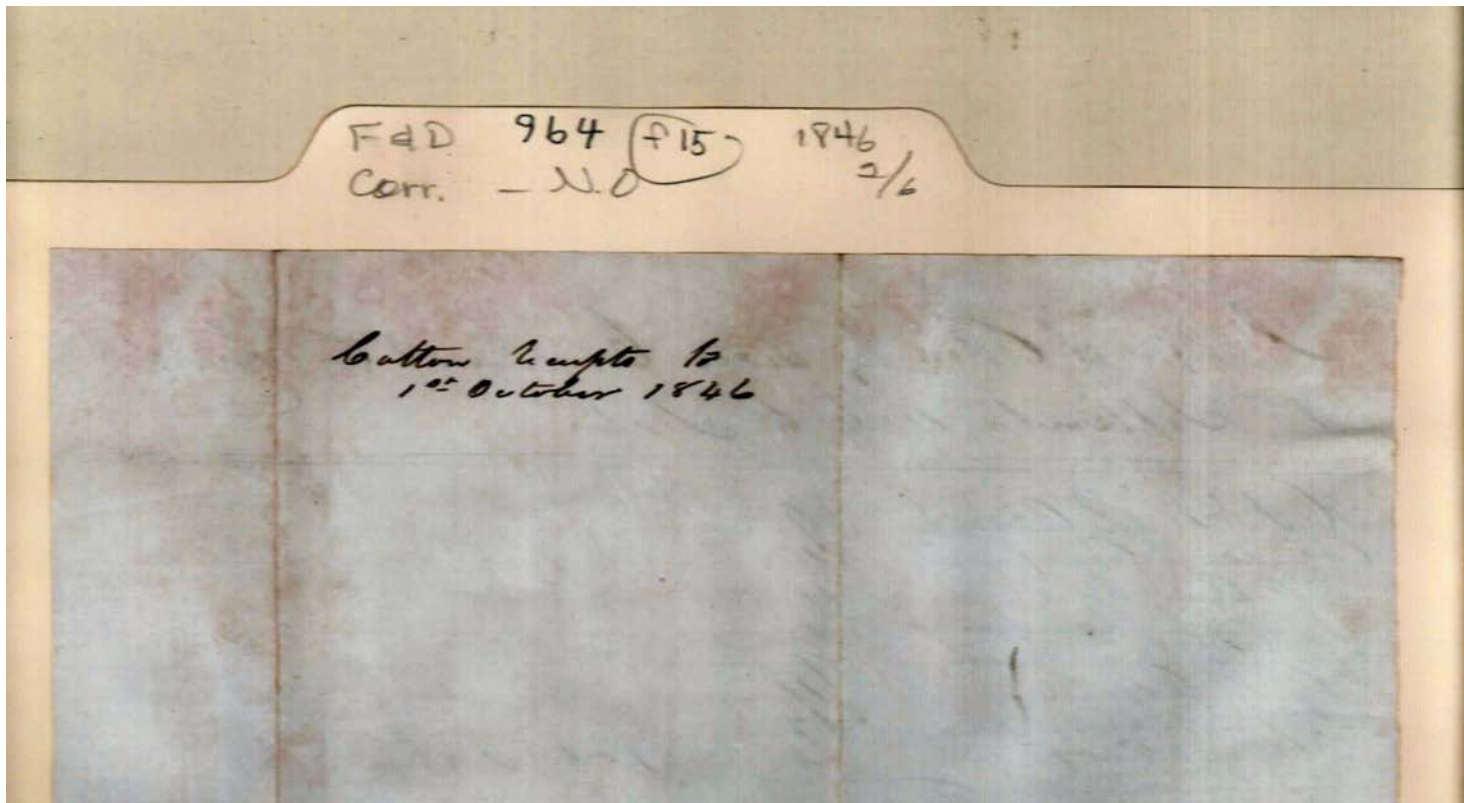 F & D 964 f 15 1846
Corr. - N.O 2/6
Cotton Receipts to
1st October 1846